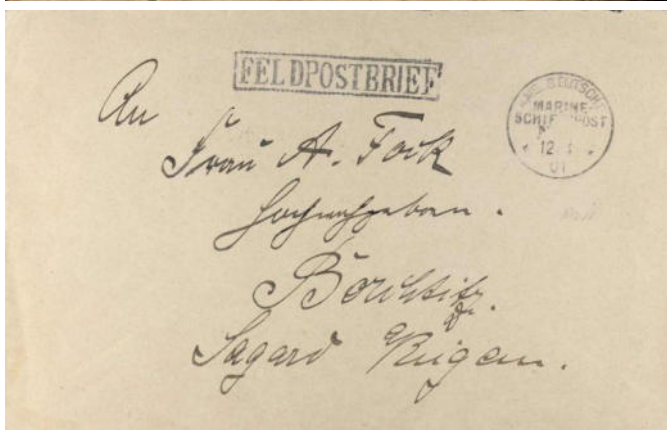 FELDPOSTBRIEF
MARINE-
SCHIFFSPOST
12
01
An
Frau A. Fock
Hochwohlgeboren.
Borchtitz
Sagard a/Rügen.